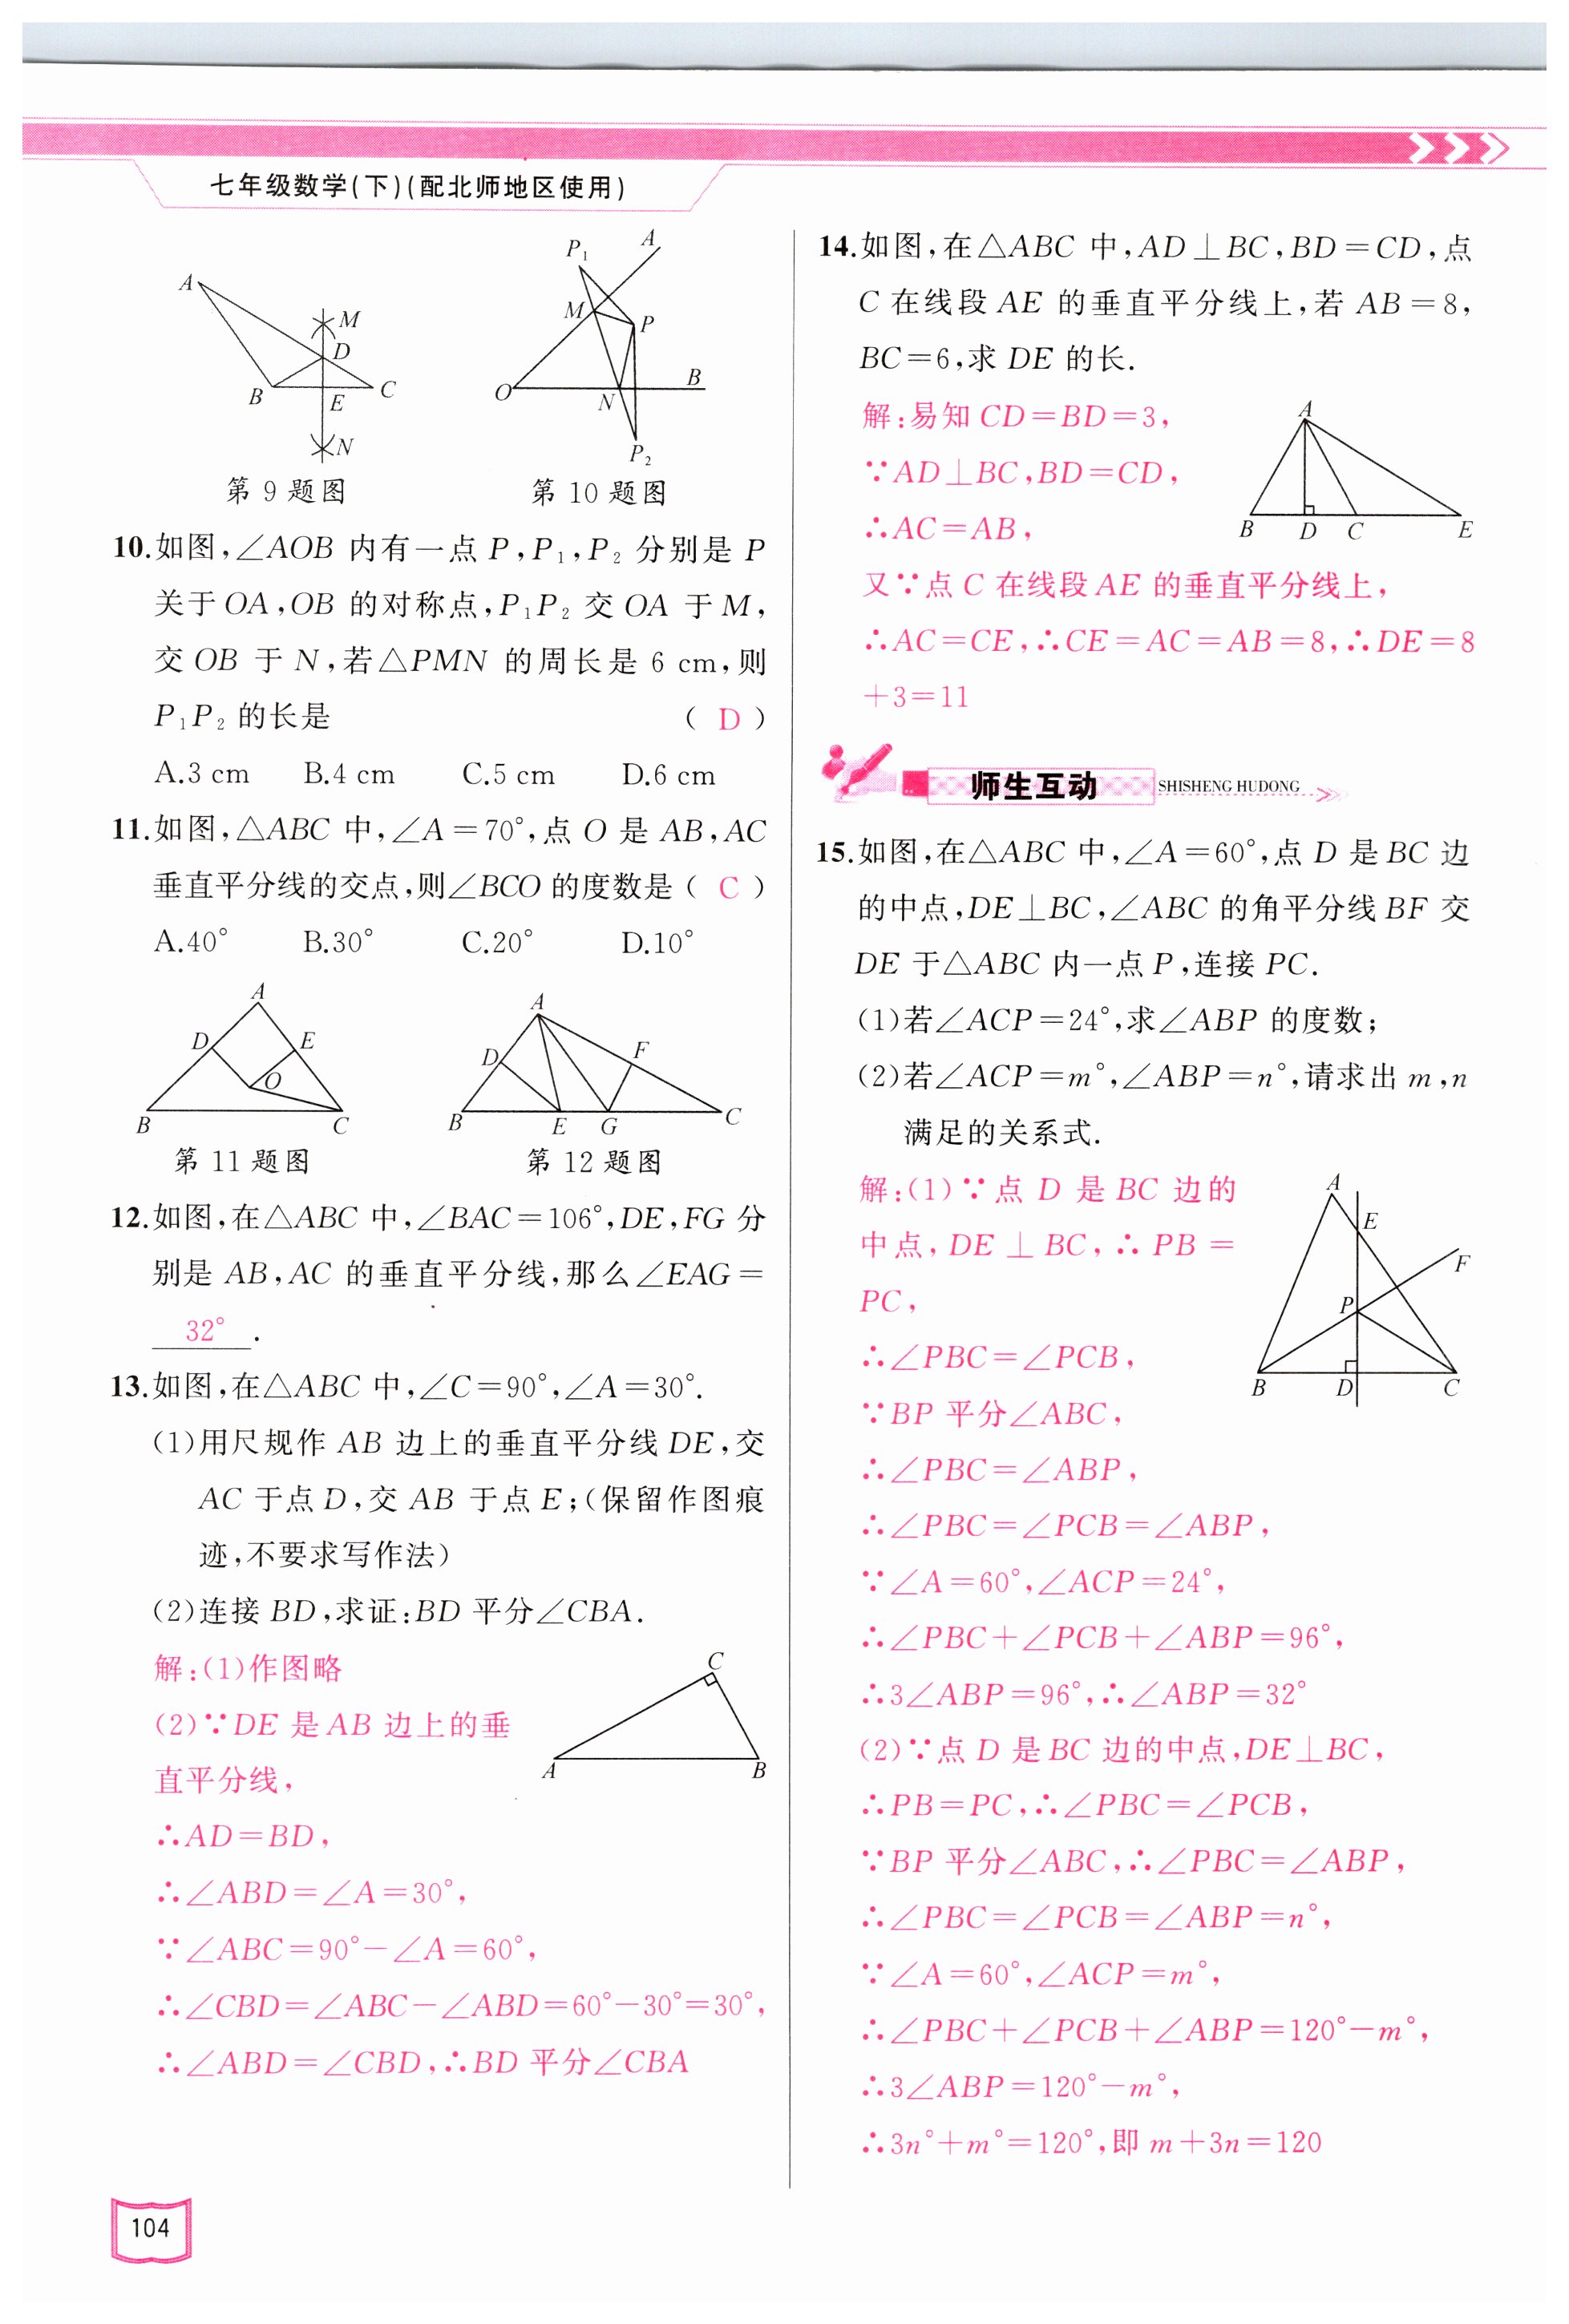 七年级数学(下)(配北师地区使用)
A
M
D
B
E
C
N
第 9 题图
P₁
A
M
P
O
N
B
P₂
第 10 题图
10.如图,∠AOB 内有一点 P,P₁,P₂ 分别是 P
关于 OA,OB 的对称点,P₁P₂ 交 OA 于 M,
交 OB 于 N,若△PMN 的周长是 6 cm,则
P₁P₂ 的长是 ( D )
A.3 cm B.4 cm C.5 cm D.6 cm
11.如图,△ABC 中,∠A=70°,点 O 是 AB,AC
垂直平分线的交点,则∠BCO 的度数是( C )
A.40° B.30° C.20° D.10°
A
D
E
O
B
C
第 11 题图
A
D
F
B
E
G
C
第 12 题图
12.如图,在△ABC 中,∠BAC=106°,DE,FG 分
别是 AB,AC 的垂直平分线,那么∠EAG=
32° .
13.如图,在△ABC 中,∠C=90°,∠A=30°.
(1)用尺规作 AB 边上的垂直平分线 DE,交
AC 于点 D,交 AB 于点 E;(保留作图痕
迹,不要求写作法)
(2)连接 BD,求证:BD 平分∠CBA.
解:(1)作图略
(2)∵DE 是 AB 边上的垂
直平分线,
C
A
B
∴AD=BD,
∴∠ABD=∠A=30°,
∵∠ABC=90°-∠A=60°,
∴∠CBD=∠ABC-∠ABD=60°-30°=30°,
∴∠ABD=∠CBD,∴BD 平分∠CBA
104
14.如图,在△ABC 中,AD⊥BC,BD=CD,点
C 在线段 AE 的垂直平分线上,若 AB=8,
BC=6,求 DE 的长.
解:易知 CD=BD=3,
∵AD⊥BC,BD=CD,
∴AC=AB,
A
B
D
C
E
又∵点 C 在线段 AE 的垂直平分线上,
∴AC=CE,∴CE=AC=AB=8,∴DE=8
+3=11
师生互动 SHISHENG HUDONG
15.如图,在△ABC 中,∠A=60°,点 D 是 BC 边
的中点,DE⊥BC,∠ABC 的角平分线 BF 交
DE 于△ABC 内一点 P,连接 PC.
(1)若∠ACP=24°,求∠ABP 的度数;
(2)若∠ACP=m°,∠ABP=n°,请求出 m,n
满足的关系式.
解:(1)∵点 D 是 BC 边的
中点,DE⊥BC,∴PB=
PC,
A
E
F
P
B
D
C
∴∠PBC=∠PCB,
∵BP 平分∠ABC,
∴∠PBC=∠ABP,
∴∠PBC=∠PCB=∠ABP,
∵∠A=60°,∠ACP=24°,
∴∠PBC+∠PCB+∠ABP=96°,
∴3∠ABP=96°,∴∠ABP=32°
(2)∵点 D 是 BC 边的中点,DE⊥BC,
∴PB=PC,∴∠PBC=∠PCB,
∵BP 平分∠ABC,∴∠PBC=∠ABP,
∴∠PBC=∠PCB=∠ABP=n°,
∵∠A=60°,∠ACP=m°,
∴∠PBC+∠PCB+∠ABP=120°-m°,
∴3∠ABP=120°-m°,
∴3n°+m°=120°,即 m+3n=120